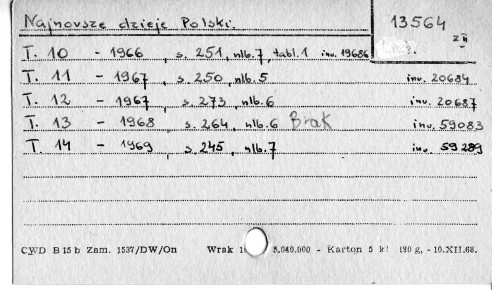 Najnowsze dzieje Polski.
13564
z II
T. 10 - 1966, s. 251, nlb. 7, tabl. 1 inw. 19686
T. 11 - 1967, s. 250, nlb. 5 inw. 20684
T. 12 - 1967, s. 273, nlb. 6 inw. 20687
T. 13 - 1968, s. 264, nlb. 6 Brak inw. 59083
T. 14 - 1969, s. 245, nlb. 7 inw. 59289
CWD B 15 b Zam. 1537/DW/On Wrak 5.040.000 - Karton 5 kl 180 g, - 10.XII.68.